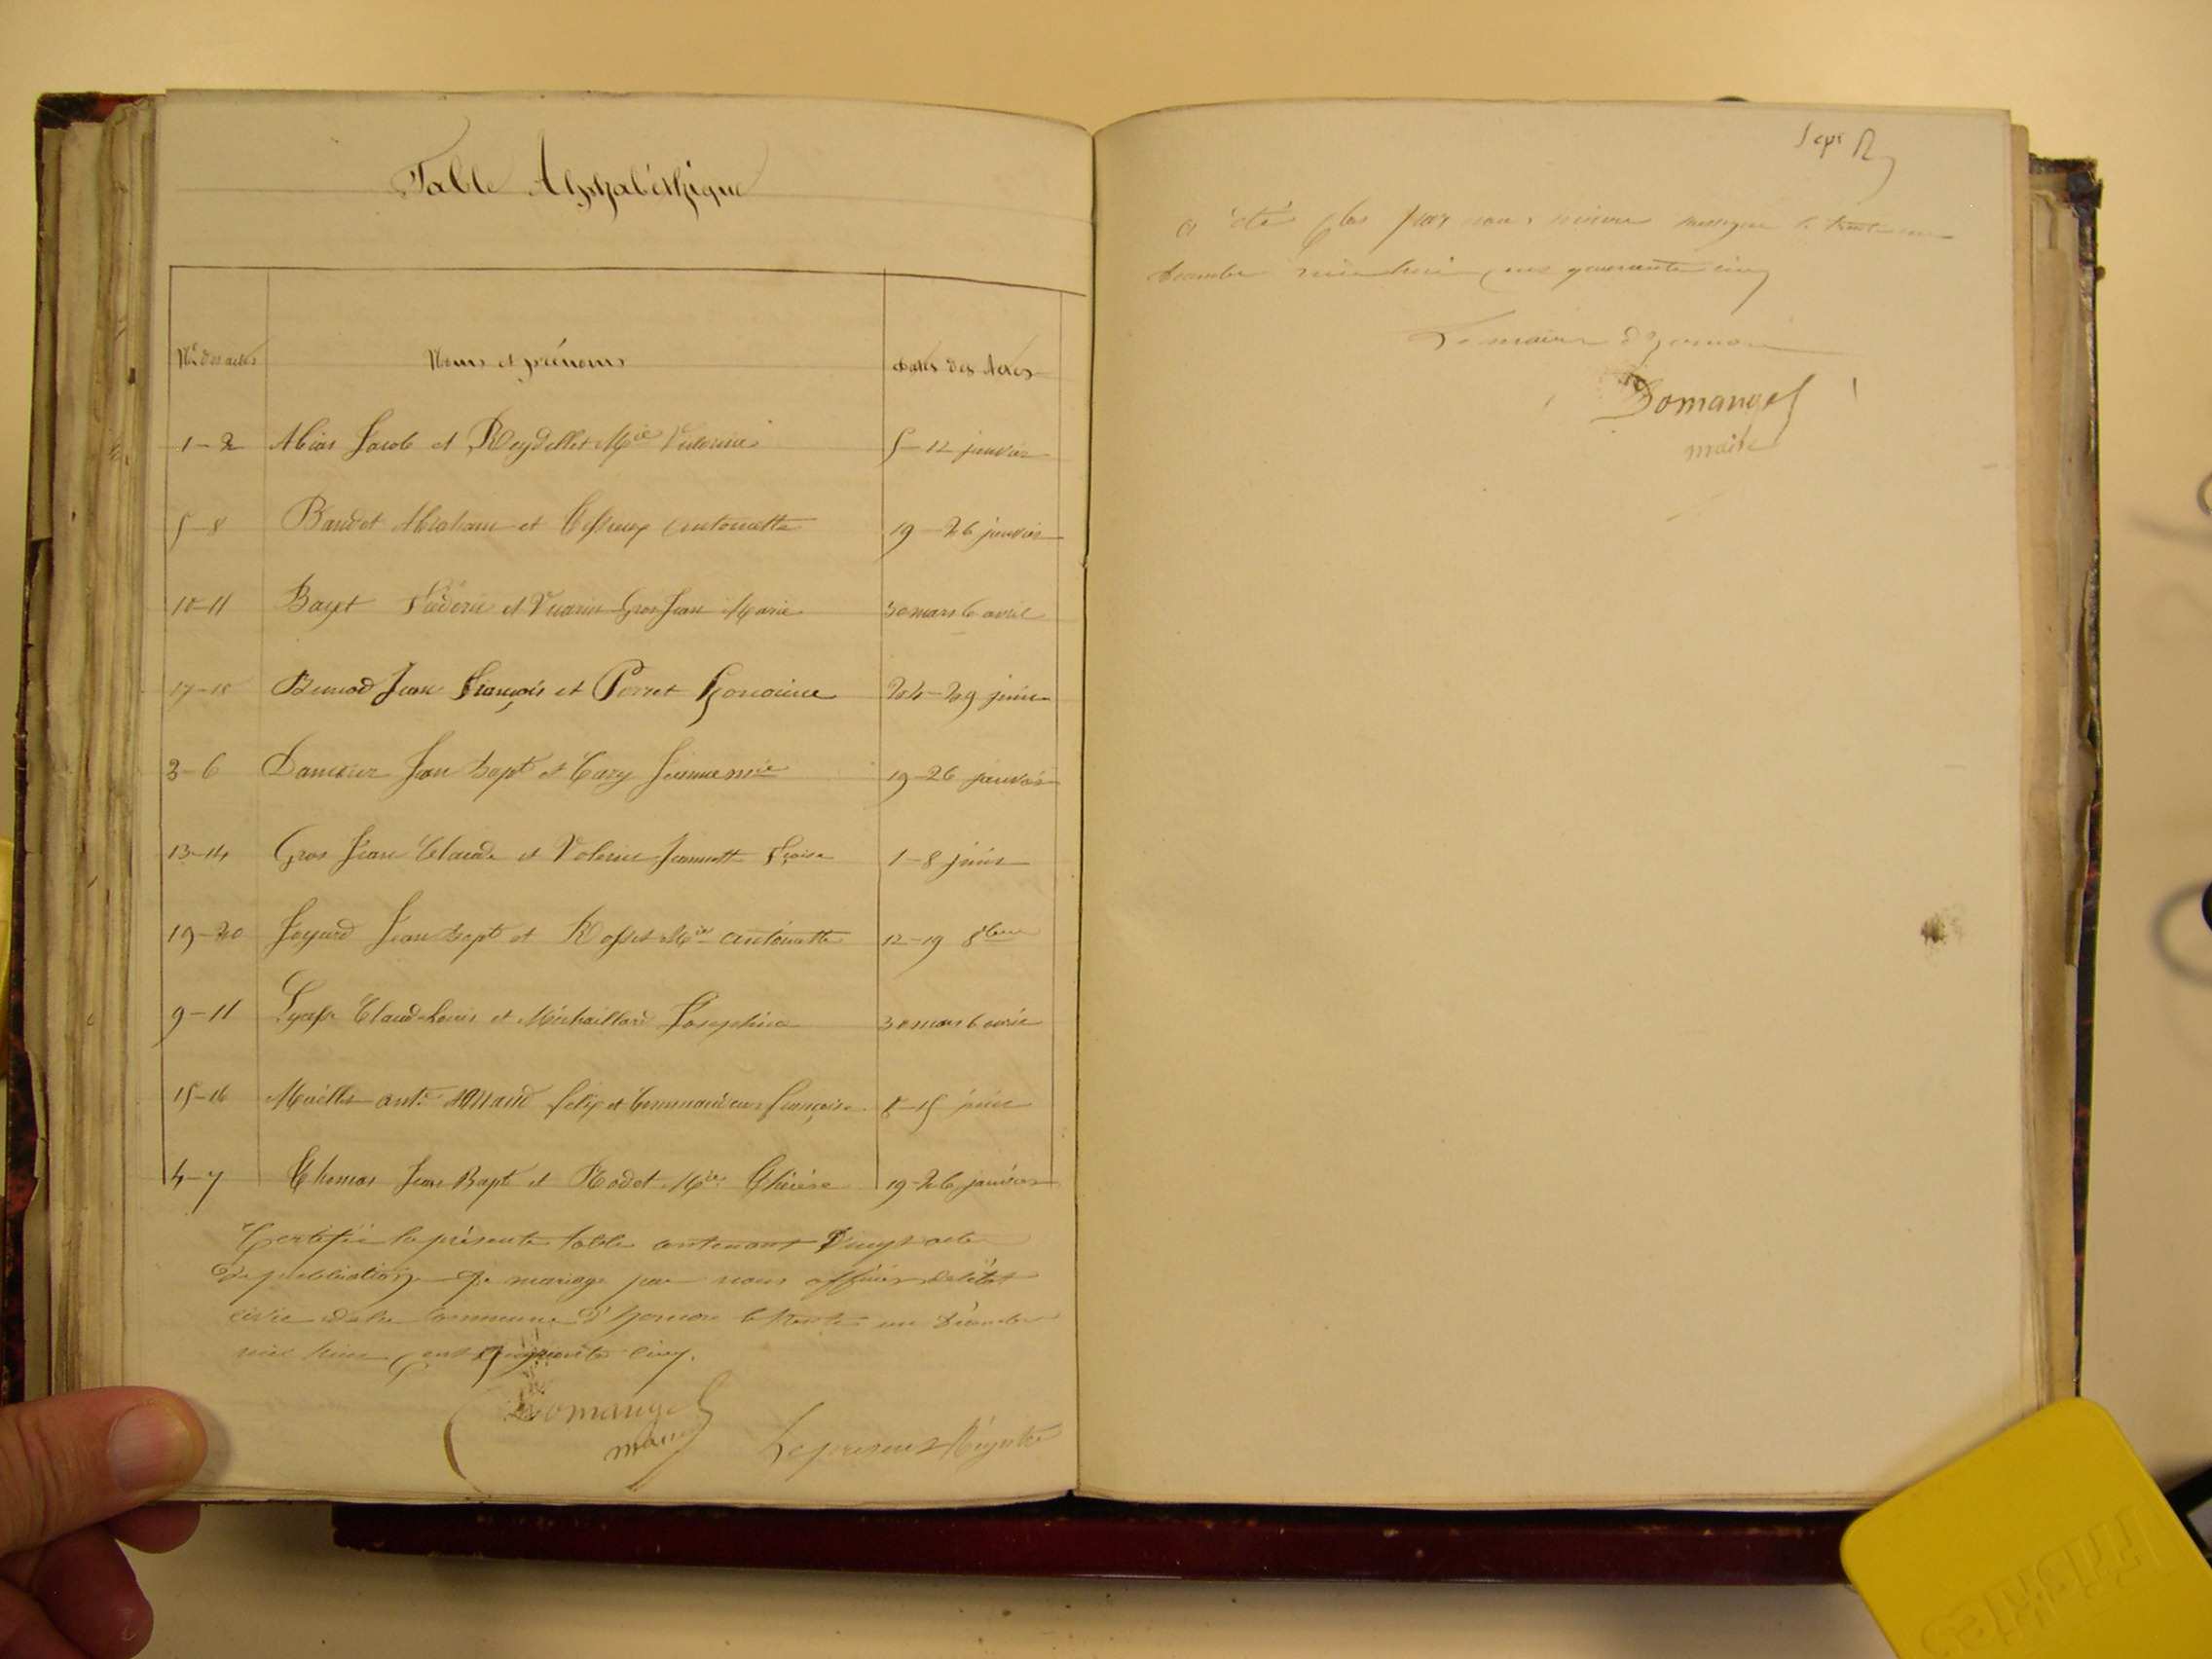 Table Alphabéthique
Nos des actes Noms et prénoms dates des Actes
1-2 Abias Jacob et Reydellet Mie 5-12 janvier
5-8 Baudet Abraham et antoinette 19-26 janvier
10-11 Bayet et Vuarin Gros Jean Marie 30 mars 6 avril
17-18 Jean François et Perret 24-29 juin
3-6 Jean bapt et 19-26 janvier
13-14 Gros Jean Claude et Jeannette fçoise 1-8 juin
19-20 Joyard Jean bapt et Rosset Mie antoinette 12-19 8bre
9-11 Claude Louis et Michaillard Josephine 30 mars 6 avril
15-16 ant. felix et françoise 8-15 juin
4-7 Thomas Jean Bapt et Rodet Mie Thérèse 19-26 janvier
Certifié la présente table contenant vingt actes
de publication de mariage par nous officier de l'état
civil de la commune d' le trente un décembre
mil huit cent quarante cinq.
Domange
maire Le present Régistre
Sept R
a été clos par nous maire le trente un
décembre mil huit cent quarante cinq
Le maire
Domange
maire
FRISKIES